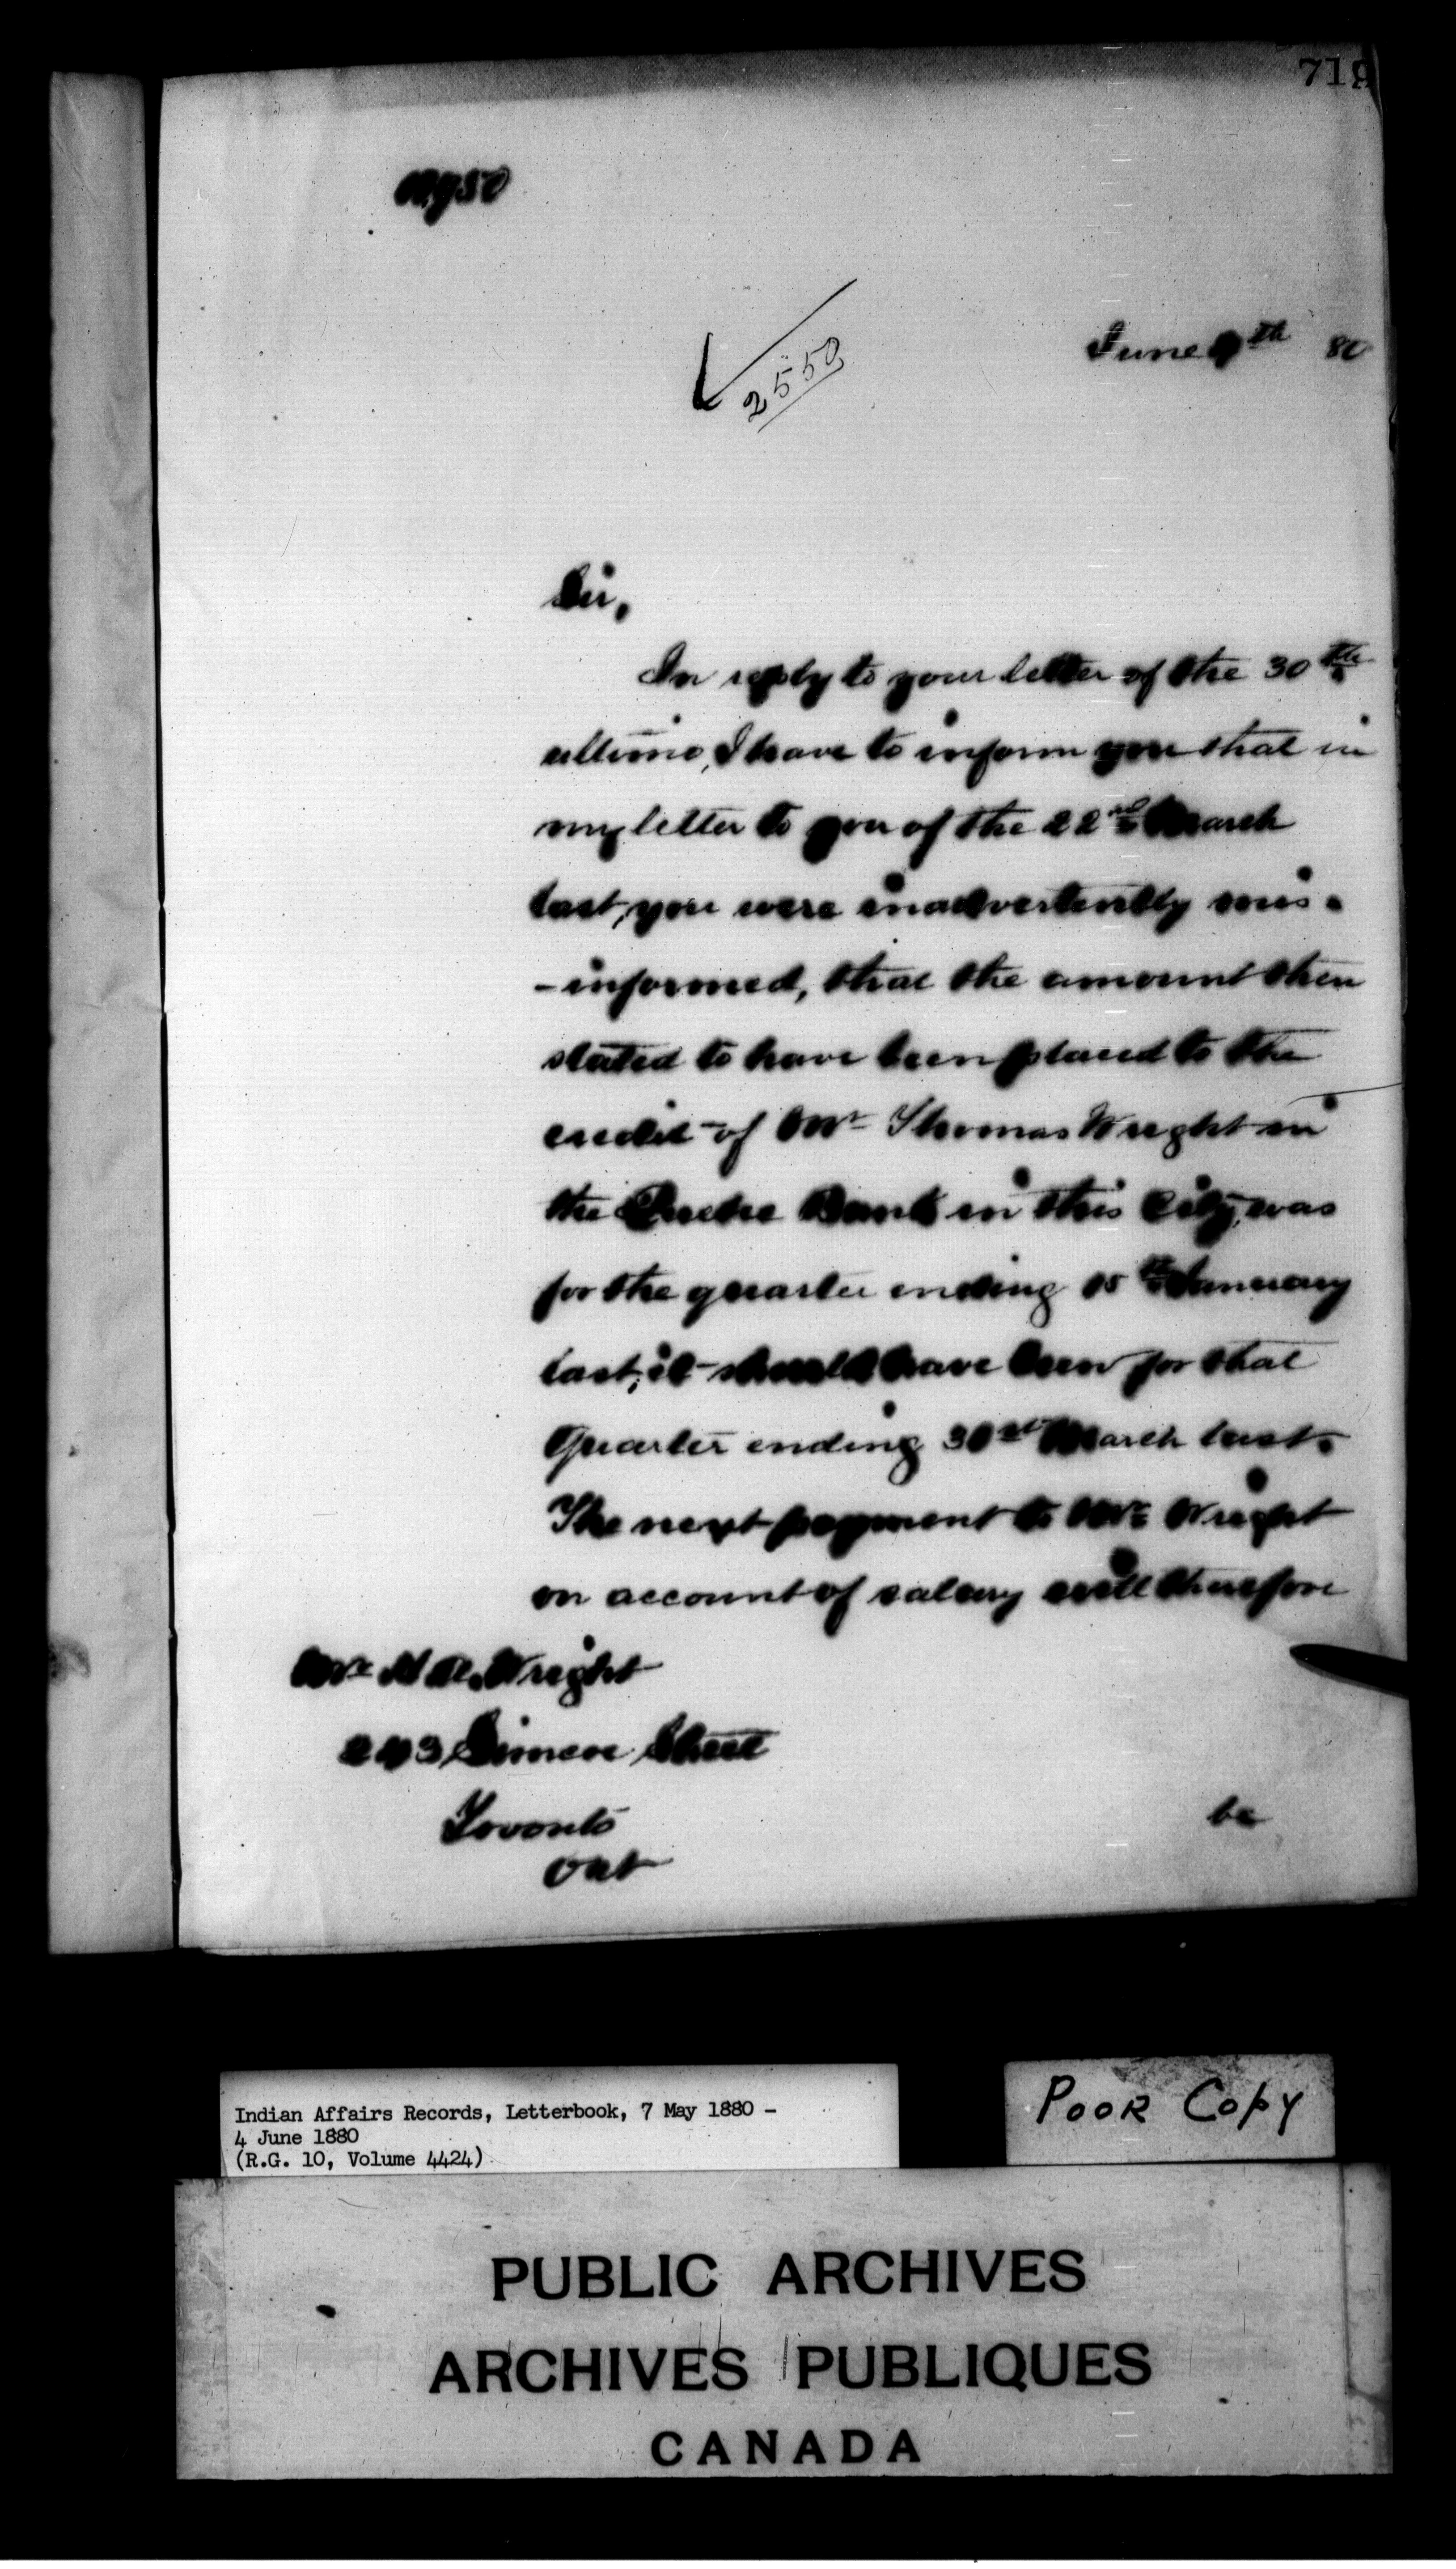 719
2550
June th 80
Sir,
In reply to your letter of the 30th
ultimo, I have to inform you that in
my letter to you of the 22nd March
last, you were inadvertently mis-
-informed, that the amount then
stated to have been placed to the
credit of Mr Thomas Wright in
the Bank in this City, was
for the quarter ending 15th January
last, it should have been for that
quarter ending March last.
The next payment to Mr Wright
on account of salary will therefore
Mr Wright
243 Simcoe Street
Toronto
Ont
be
Indian Affairs Records, Letterbook, 7 May 1880 -
4 June 1880
(R.G. 10, Volume 4424)
POOR COPY
PUBLIC ARCHIVES
ARCHIVES PUBLIQUES
CANADA